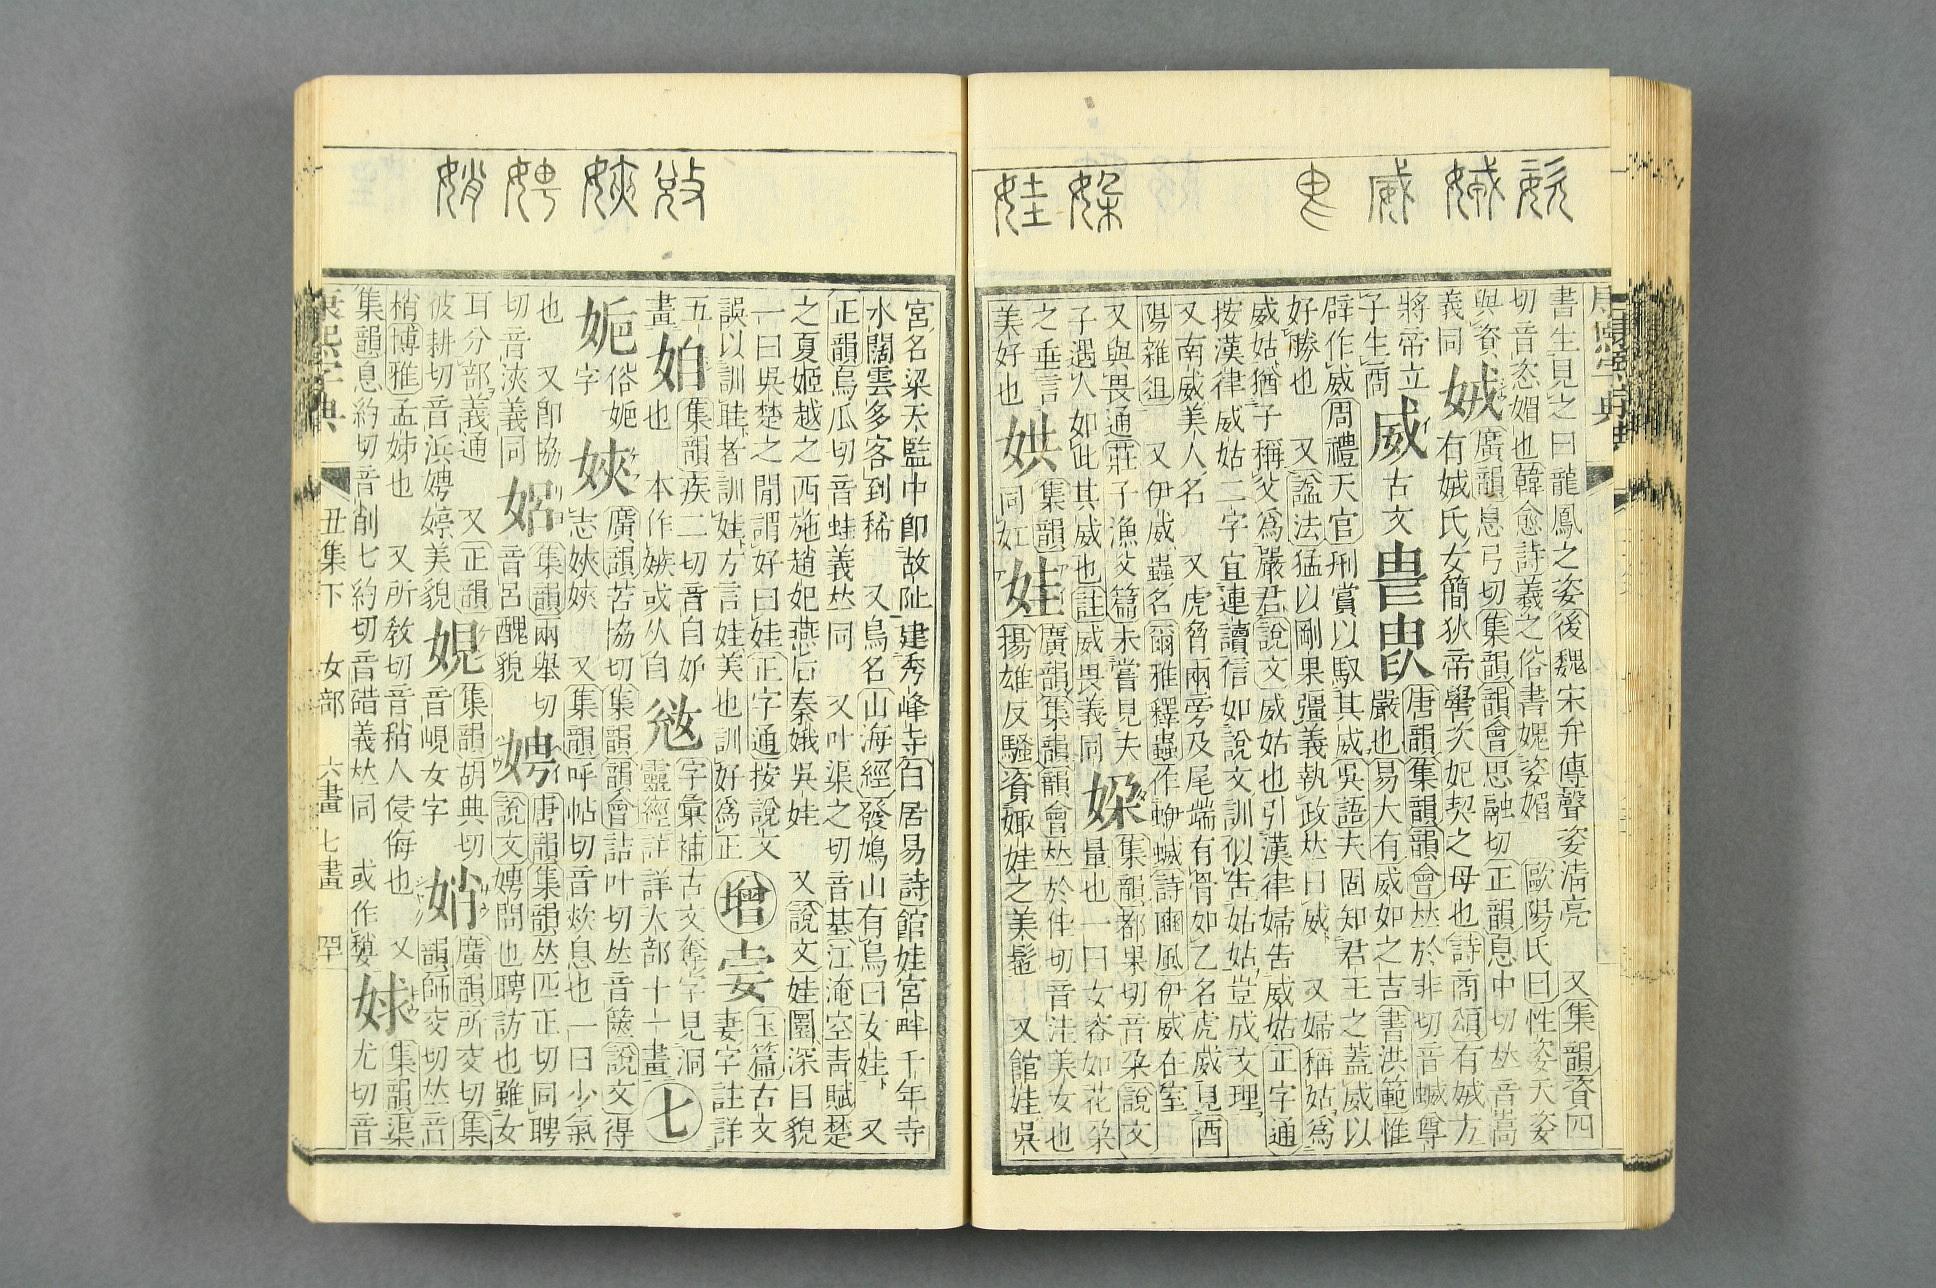 康熙字典
書生見之曰龍鳳之姿後魏宋弁傳聲姿淸亮 又集韻資四
切音恣媚也韓愈詩羲之俗書媿姿媚 歐陽氏曰性姿天姿
與資義同 娀 廣韻息弓切集韻韻會思融切正韻息中切𠀤音嵩
有娀氏女簡狄帝嚳次妃契之母也詩商頌有娀方
將帝立子生商 威 古文 唐韻集韻韻會𠀤於非切音蝛尊
嚴也易大有威如之吉書洪範惟
辟作威周禮天官刑賞以馭其威吳語夫固知君王之蓋威以
好勝也 又諡法猛以剛果彊義執政𠀤曰威 又婦稱姑爲
威姑猶子稱父爲嚴君說文威姑也引漢律婦告威姑正字通
按漢律威姑二字宜連讀信如說文訓似告姑姑豈成文理
又南威美人名 又虎脅兩旁及尾端有骨如乙名虎威見酉
陽雜俎 又伊威蟲名爾雅釋蟲作蛜蝛詩豳風伊威在室
又與畏通莊子漁父篇未嘗見夫
子遇人如此其威也註威畏義同 媣 集韻都果切音朶說文
量也一曰女容如花朶
之垂言美好也 娂 集韻同 娃 廣韻集韻韻會𠀤於佳切音洼美女也
揚雄反騷資娵娃之美髢 又館娃吳
宮名梁天監中卽故阯建秀峰寺白居易詩館娃宮畔千年寺
水闊雲多客到稀 又鳥名山海經發鳩山有鳥曰女娃 又
正韻烏瓜切音蛙義𠀤同 又叶渠之切音基江淹空靑賦楚
之夏姬越之西施趙妃燕后秦娥吳娃 又說文娃圜深目貌
一曰吳楚之閒謂好曰娃正字通按說文
誤以訓眭者訓娃方言娃美也訓好爲正 增 玉篇古文
妻字註詳
五畫 集韻疾二切音自妒
也 本作嫉或从自 字彙補古文奪字見洞
靈經詳詳大部十一畫 七
妮 俗妮字 㛍 廣韻苦協切集韻韻會詰叶切𠀤音篋說文得
志㛍㛍 又集韻呼帖切音㷸息也一曰少氣
也 又卽協切音浹義同 集韻兩舉切
音呂醜貌 娉 唐韻集韻𠀤匹正切同聘
說文娉問也聘訪也雖女
耳分部義通 又正韻
彼耕切音浜娉婷美貌 娊 集韻胡典切
音峴女字 娋 廣韻所交切集
韻師交切𠀤音
梢博雅孟姊也 又所敎切音稍人侵侮也 又
集韻息約切音削七約切音䜺義𠀤同 或作䅵 㛏 集韻渠
尤切音
康熙字典 丑集下 女部 六畫 七畫